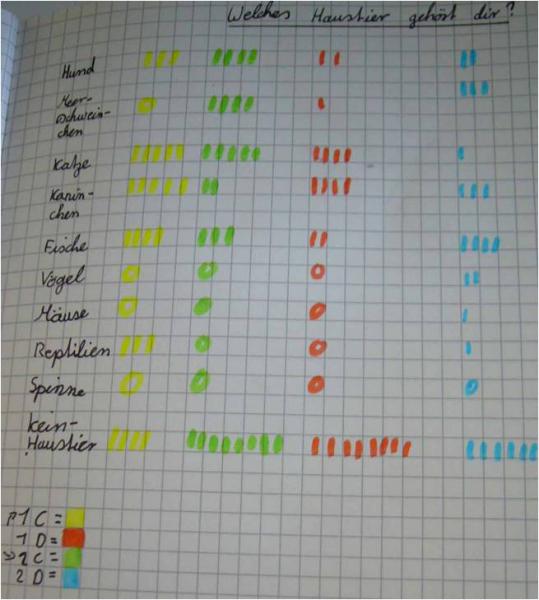 Welches Haustier gehört dir?
Hund
Meer-
schwein-
chen
Katze
Kanin-
chen
Fische
Vögel
Mäuse
Reptilien
Spinne
kein-
Haustier
1 C =
1 D =
2 C =
2 D =